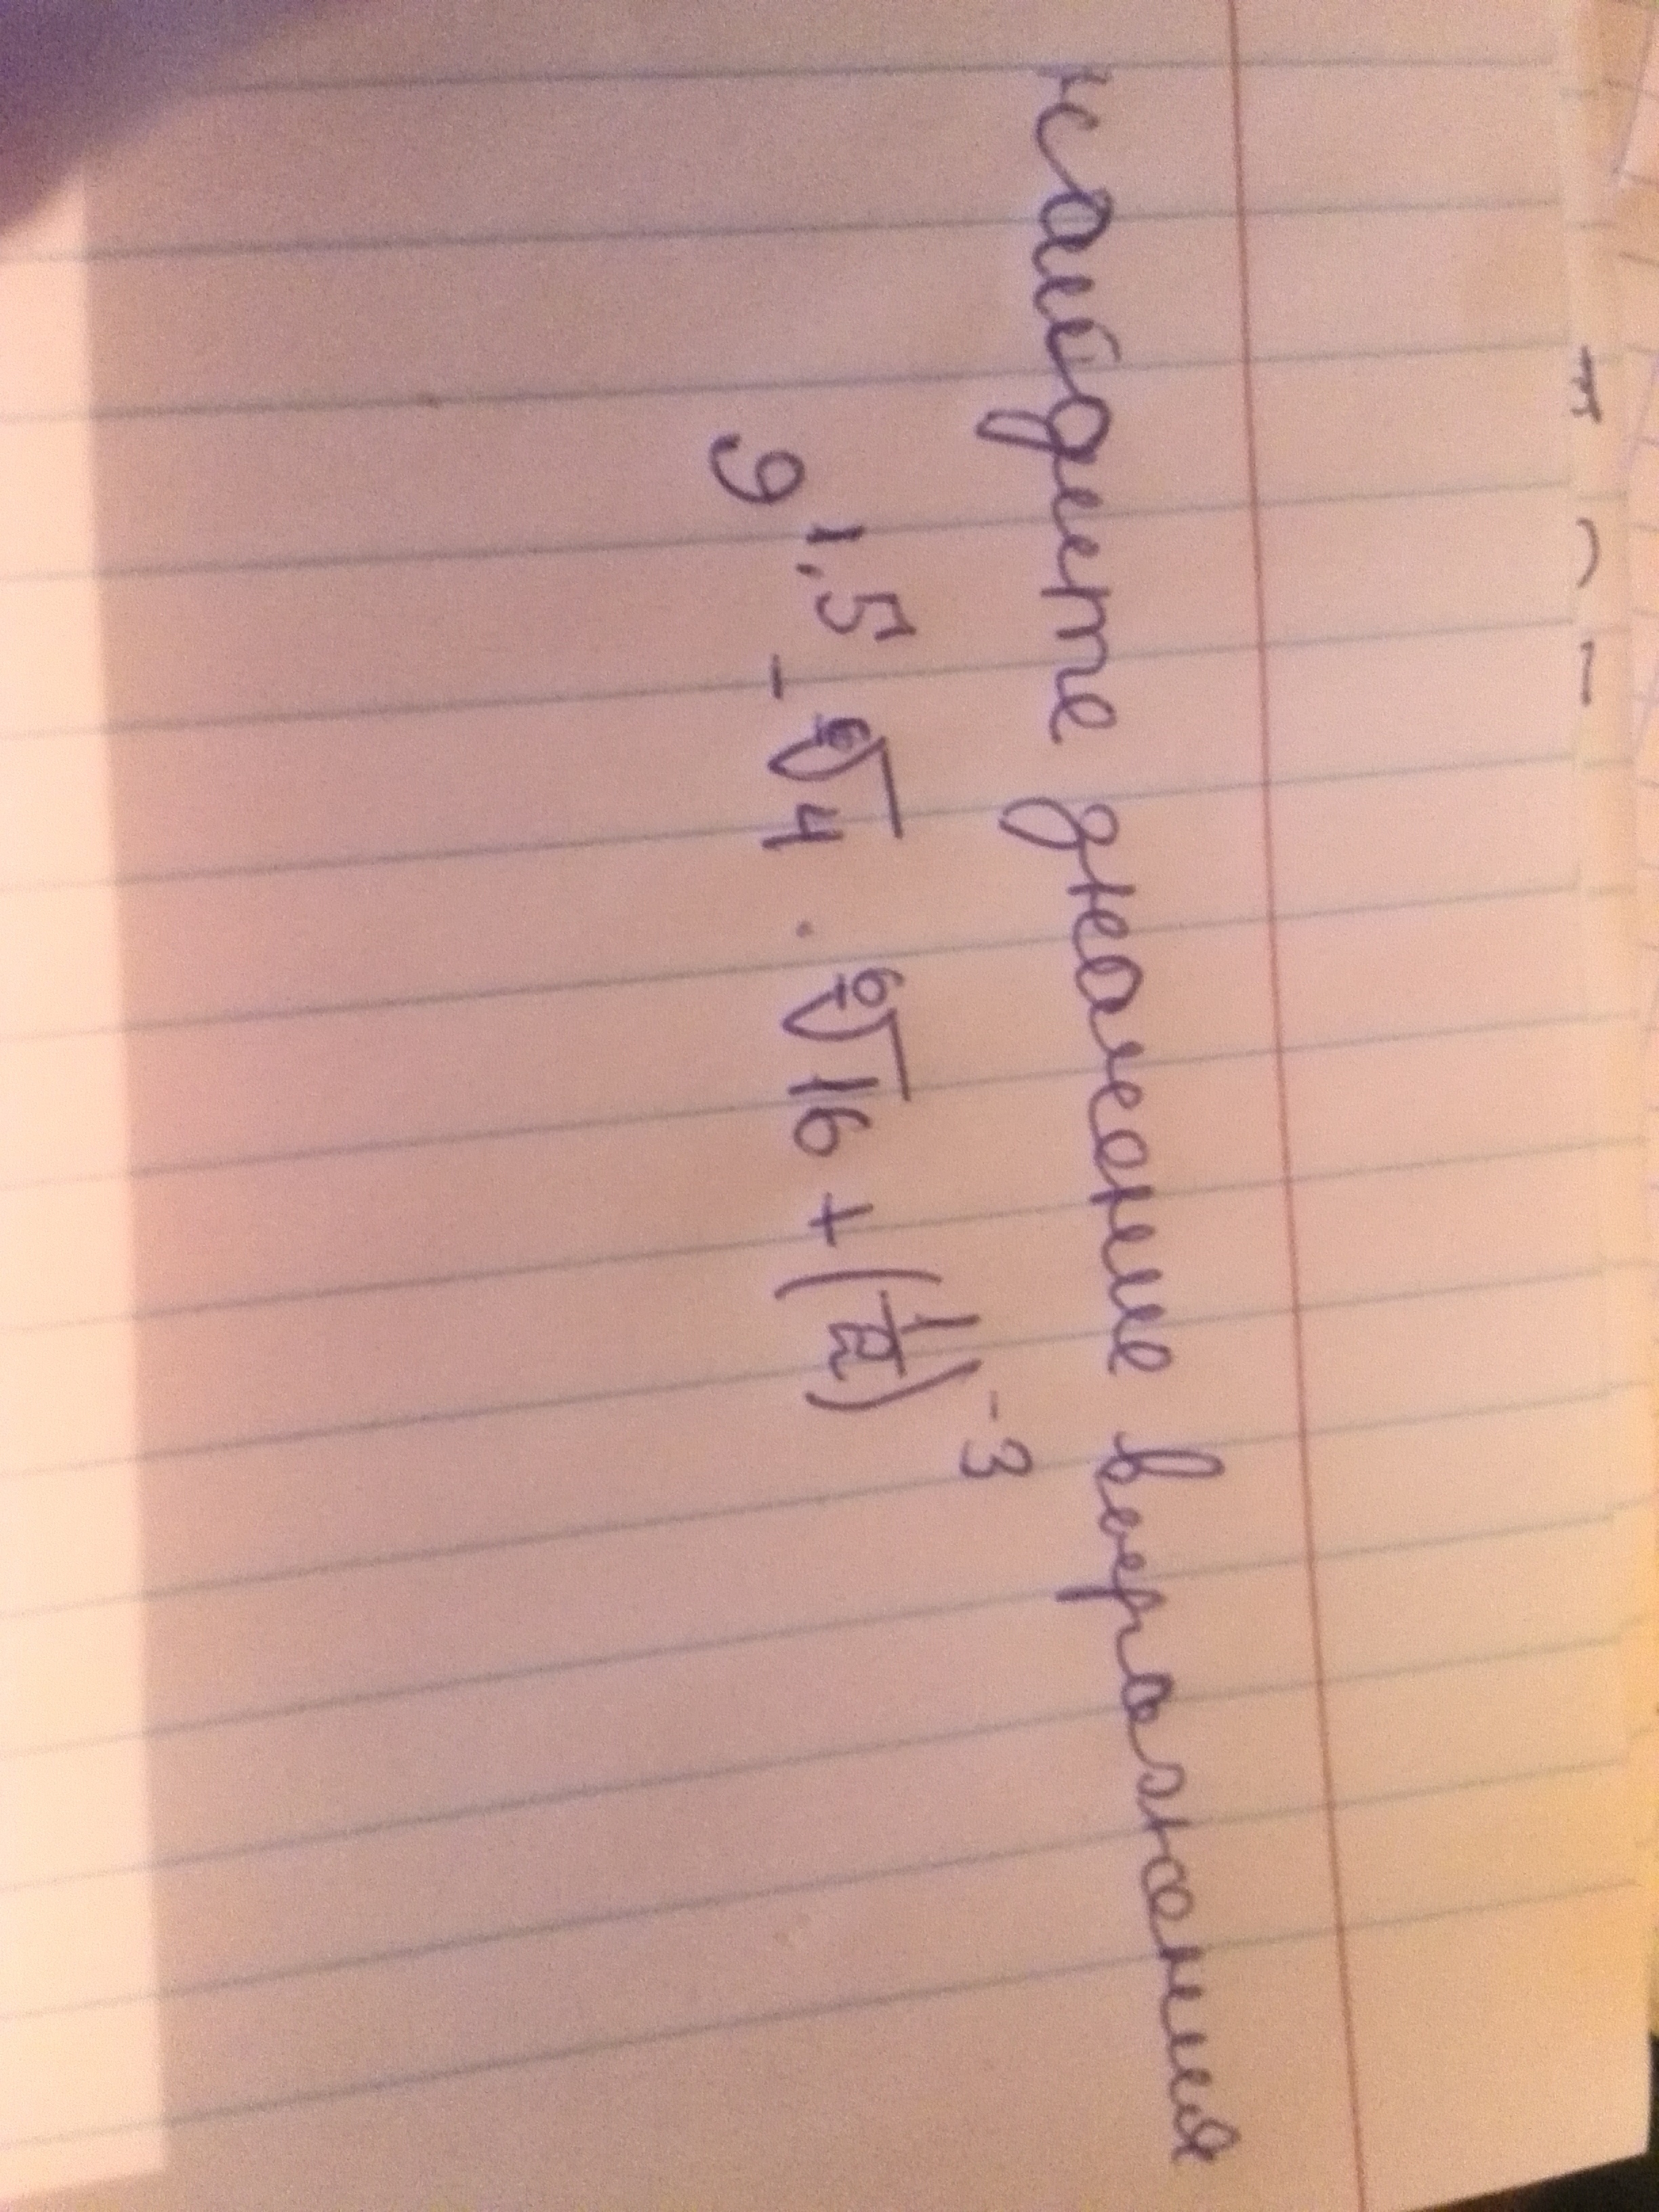 найдите значение выражения
9^{1,5} - \sqrt[6]{4} · \sqrt[6]{16} + (\frac{1}{2})^{-3}